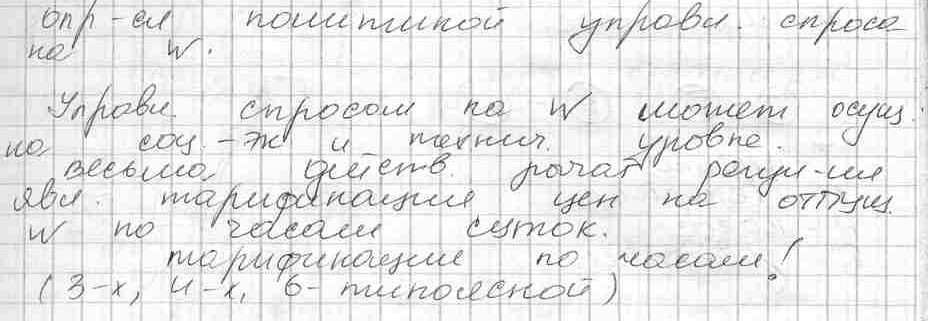 опр-ся политикой управл. спроса
на W.
Управл. спросом на W может осущ.
на соц.-эк и технич. уровне.
весьма действ. рычаг регул-ия
явл. тарификация цен на отпущ.
W по часам суток.
тарификация по часам!
(3-х, 4-х, 6-типоясной)